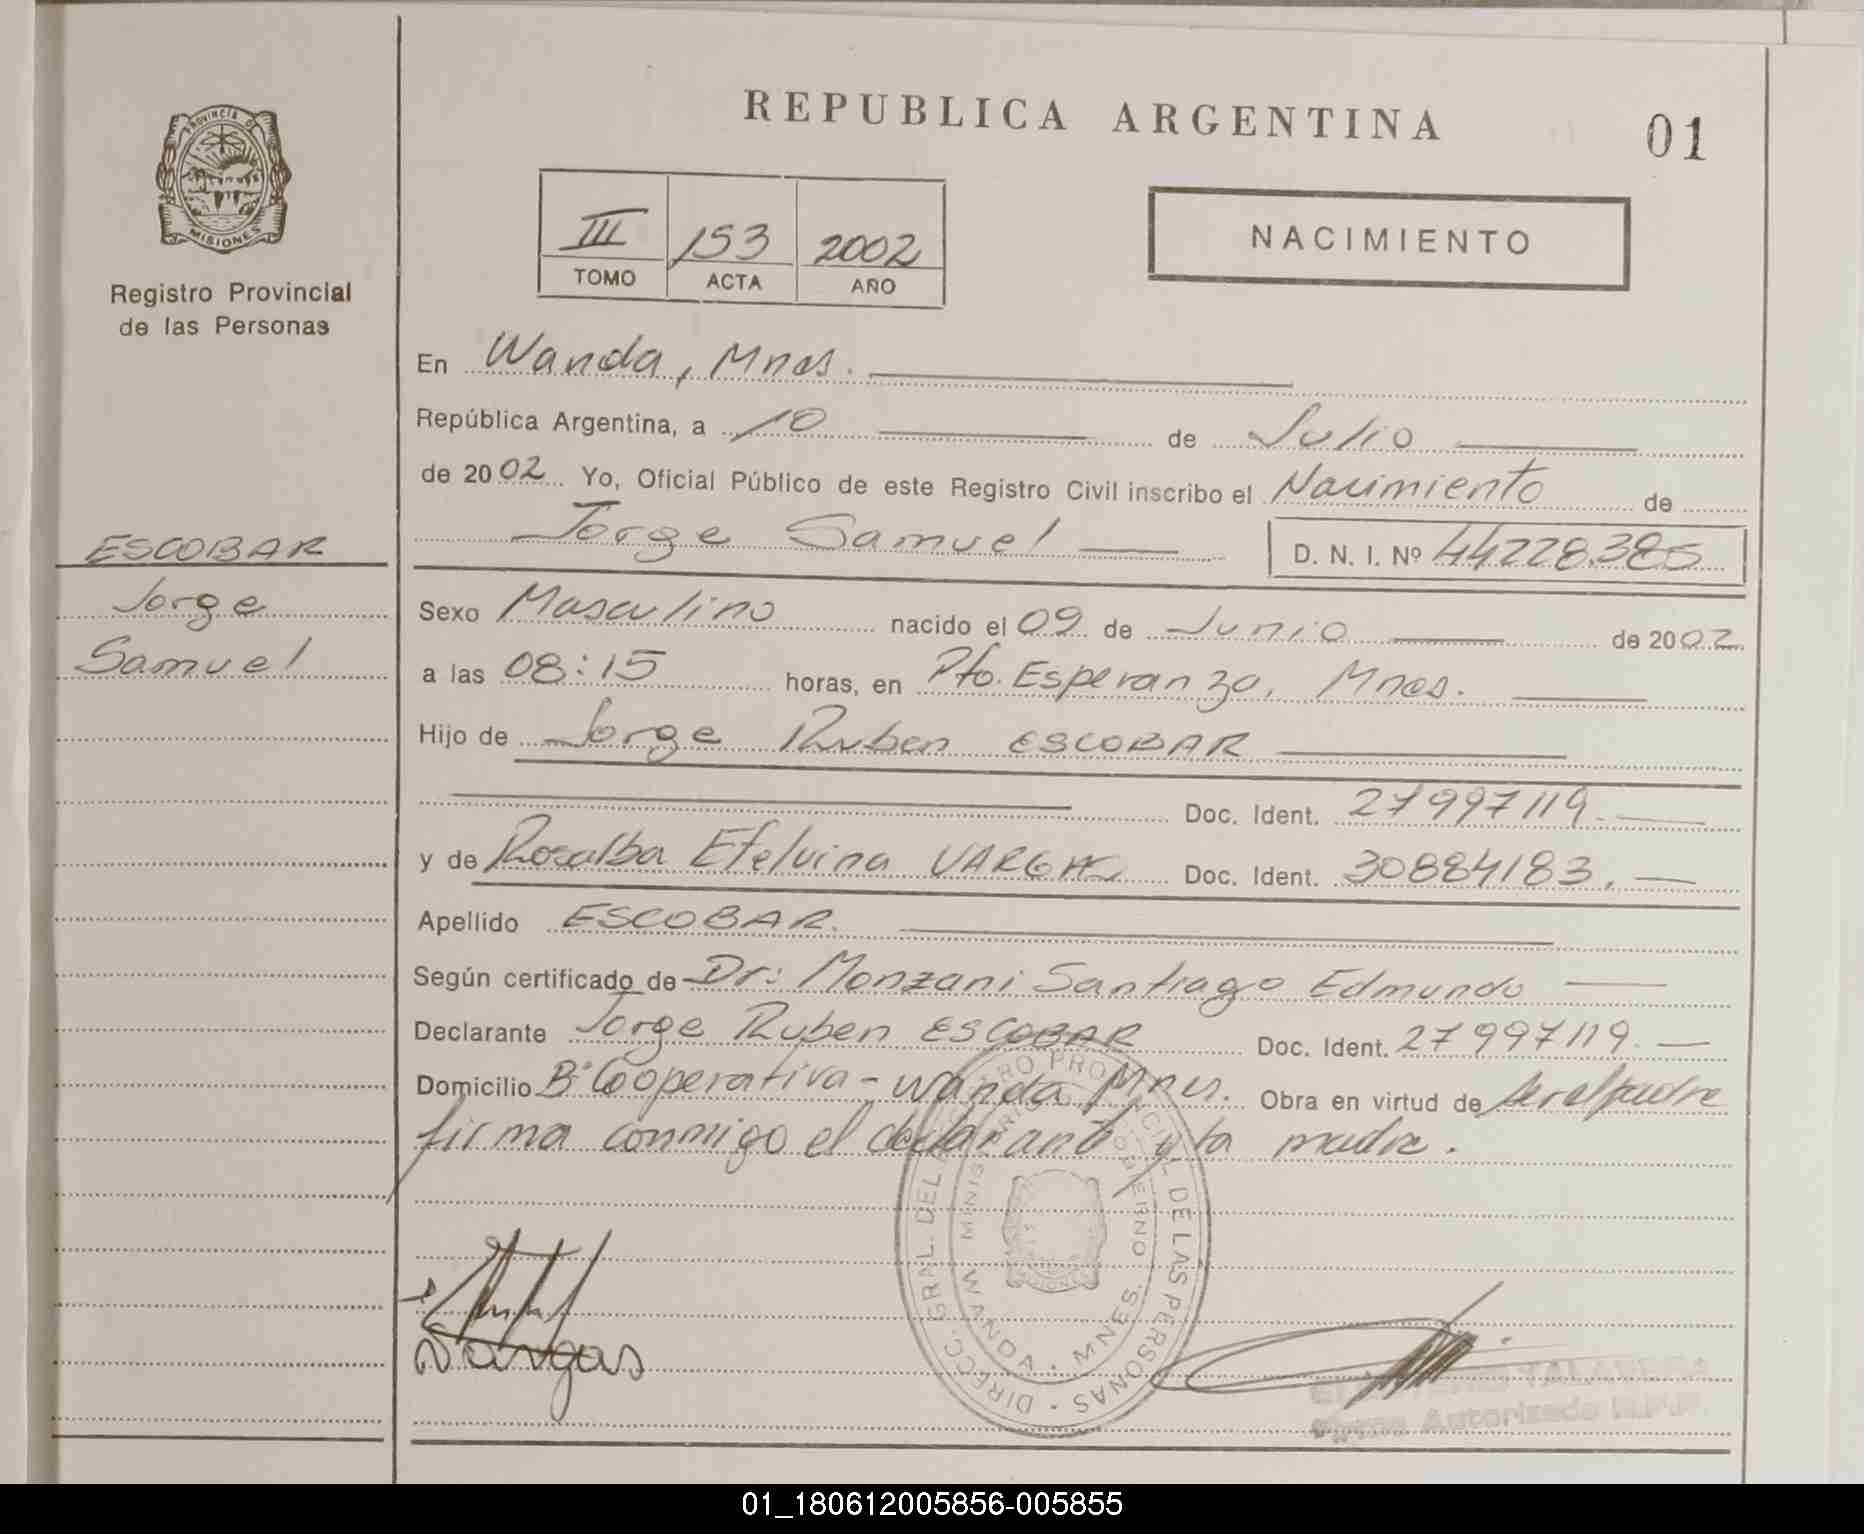 PROVINCIA D
MISIONES
Registro Provincial
de las Personas
ESCOBAR
Jorge
Samuel
REPUBLICA ARGENTINA
01
III 153 2002
TOMO ACTA AÑO
NACIMIENTO
En Wanda, Mnes.
República Argentina, a 10 de Julio
de 2002 Yo, Oficial Público de este Registro Civil inscribo el Nacimiento de
Jorge Samuel D. N. I. Nº 44228.385
Sexo Masculino nacido el 09 de Junio de 2002
a las 08:15 horas, en Pto. Esperanza, Mnes.
Hijo de Jorge Ruben ESCOBAR
Doc. Ident. 27997119.
y de Rosalba Etelvina VARGAS Doc. Ident. 30884183.
Apellido ESCOBAR.
Según certificado de Dr: Monzani Santiago Edmundo
Declarante Jorge Ruben ESCOBAR Doc. Ident. 27997119.
Domicilio Bº Cooperativa - Wanda Mnes. Obra en virtud de ser el padre
firma conmigo el declarante y la madre.
DIRECC. GRAL. DEL REGISTRO PROVINCIAL DE LAS PERSONAS
MINISTERIO GOBIERNO
WANDA MNES.
Vargas
TALAVERA
Firma Autorizada R.P.P.
01_180612005856-005855